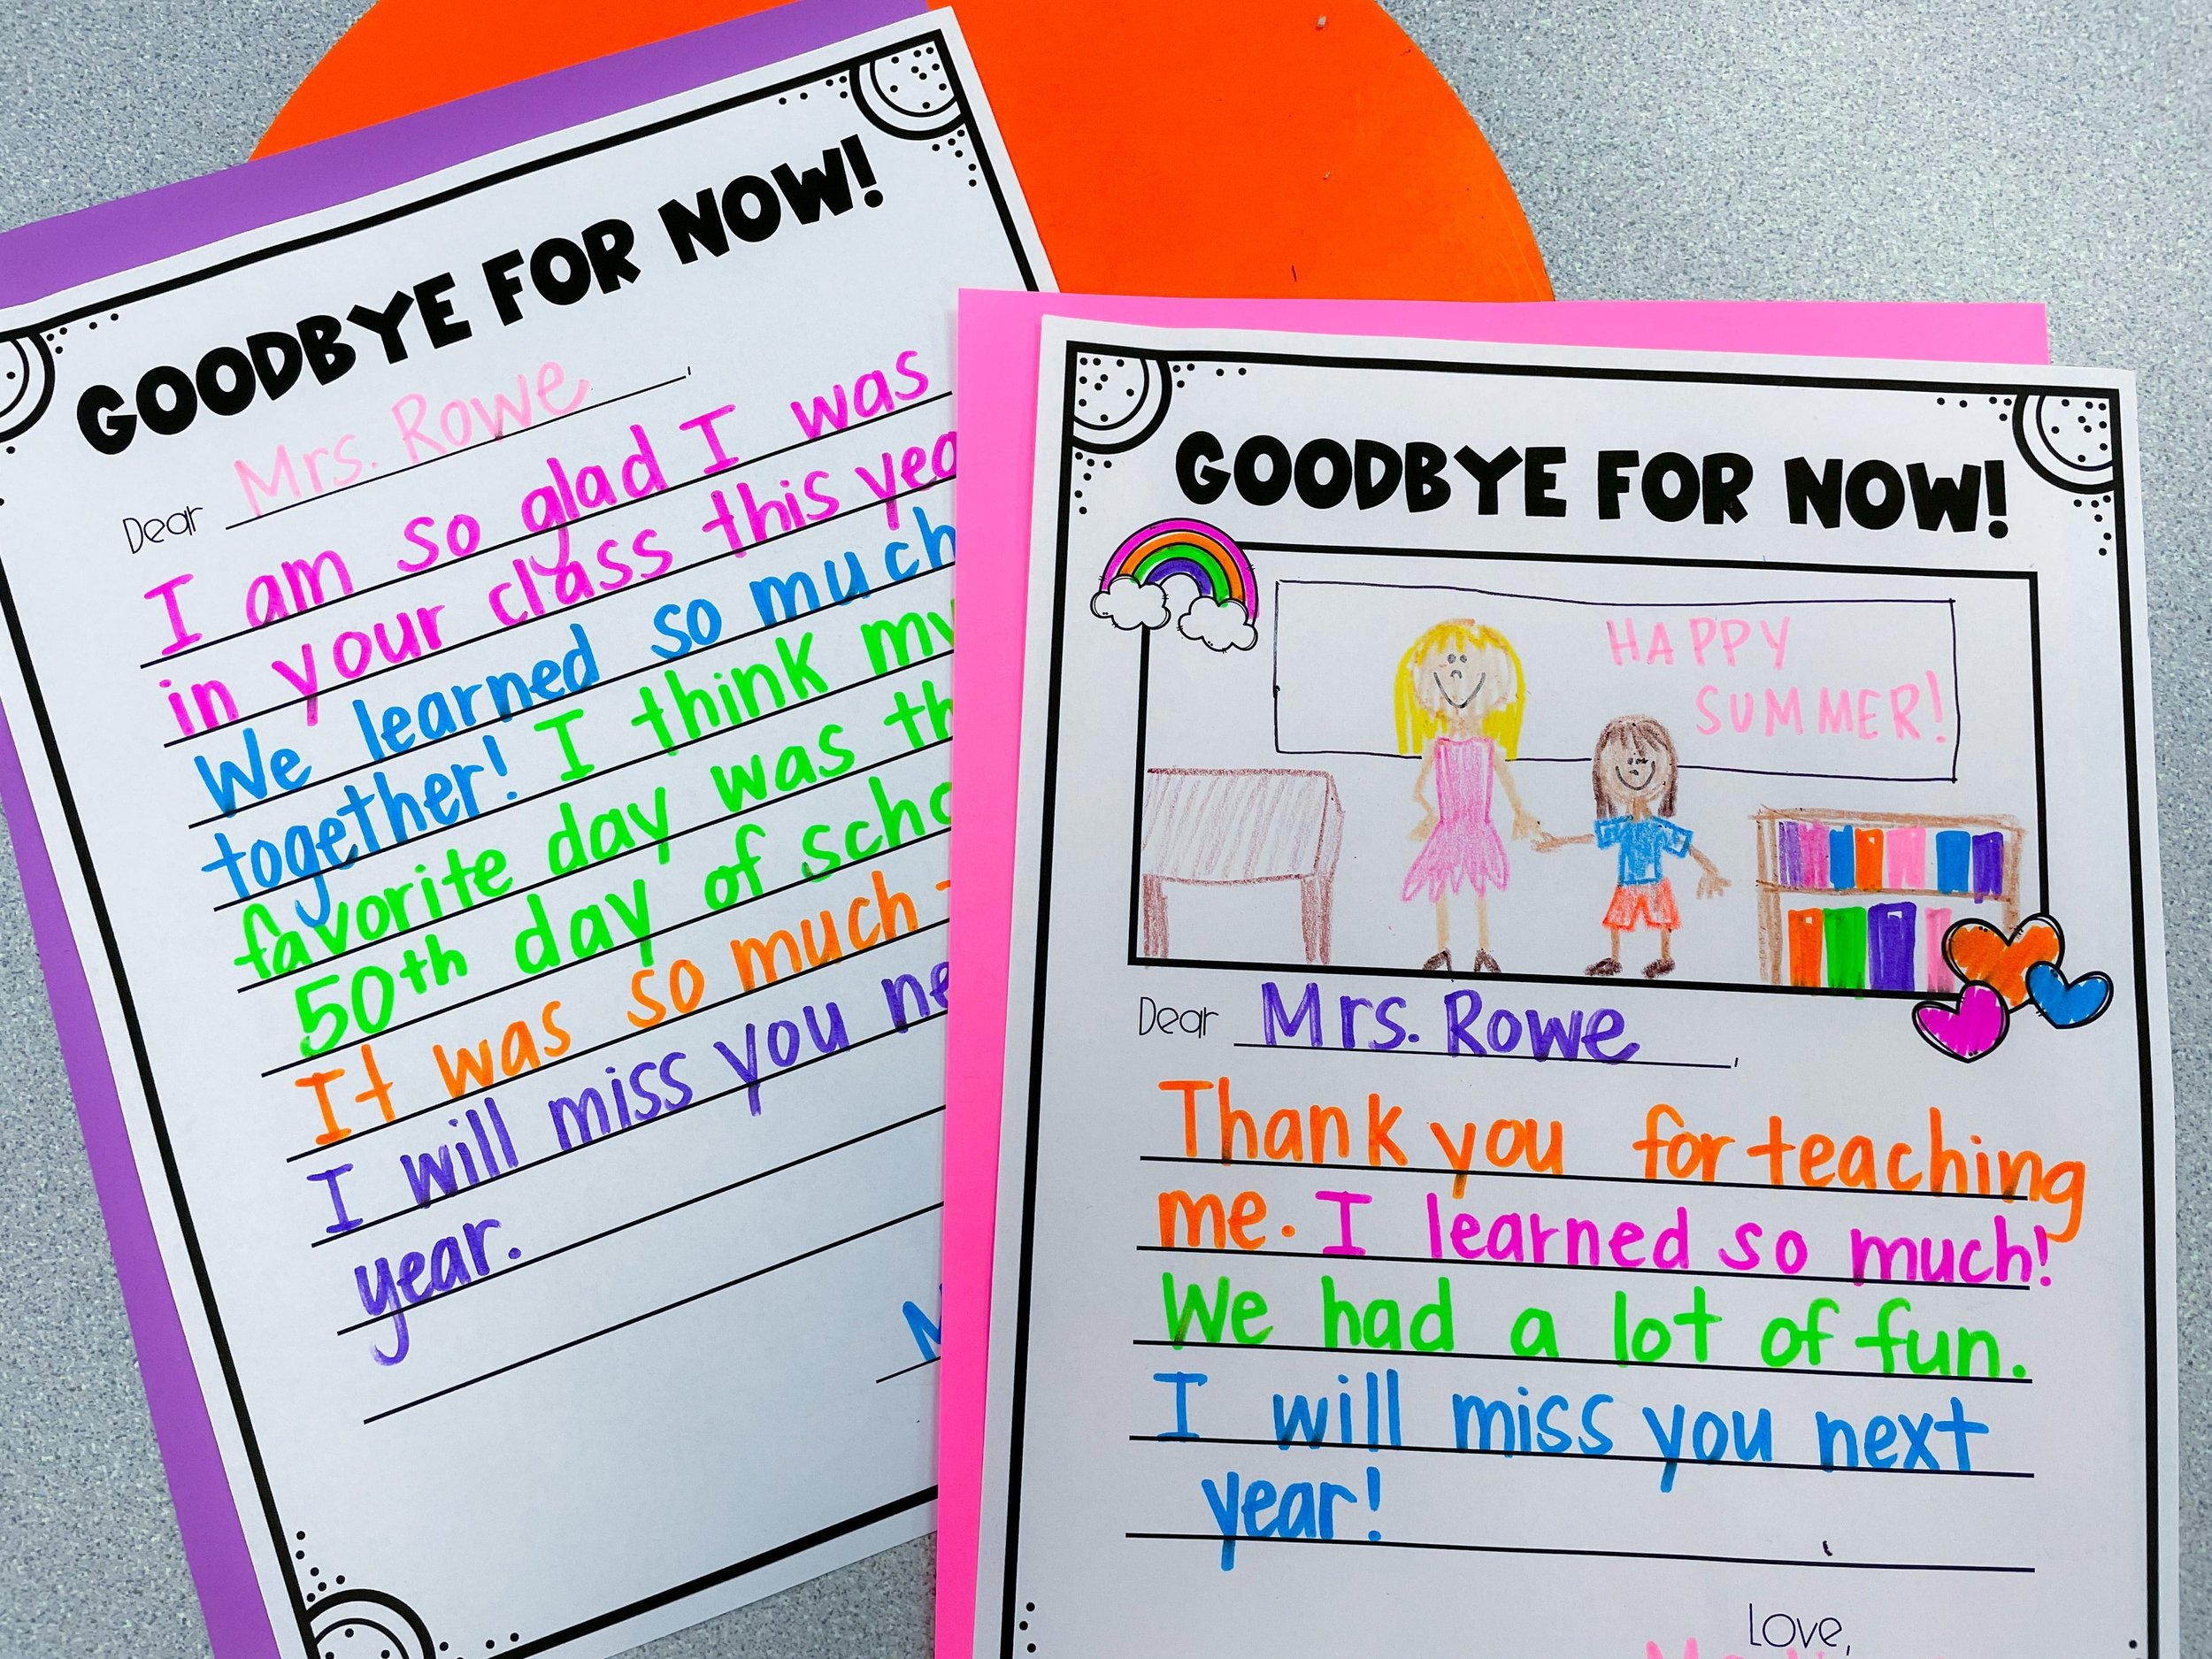 GOODBYE FOR NOW!
Dear Mrs. Rowe,
I am so glad I was
in your class this
We learned so much
together! I think my
favorite day was
50th day of
It was so much
I will miss you
year.
GOODBYE FOR NOW!
HAPPY
SUMMER!
Dear Mrs. Rowe,
Thank you for teaching
me. I learned so much!
We had a lot of fun.
I will miss you next
year!
Love,